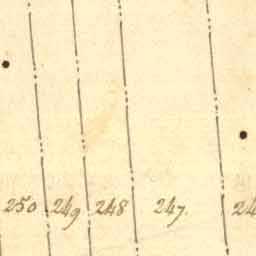 250 249 248 247. 24